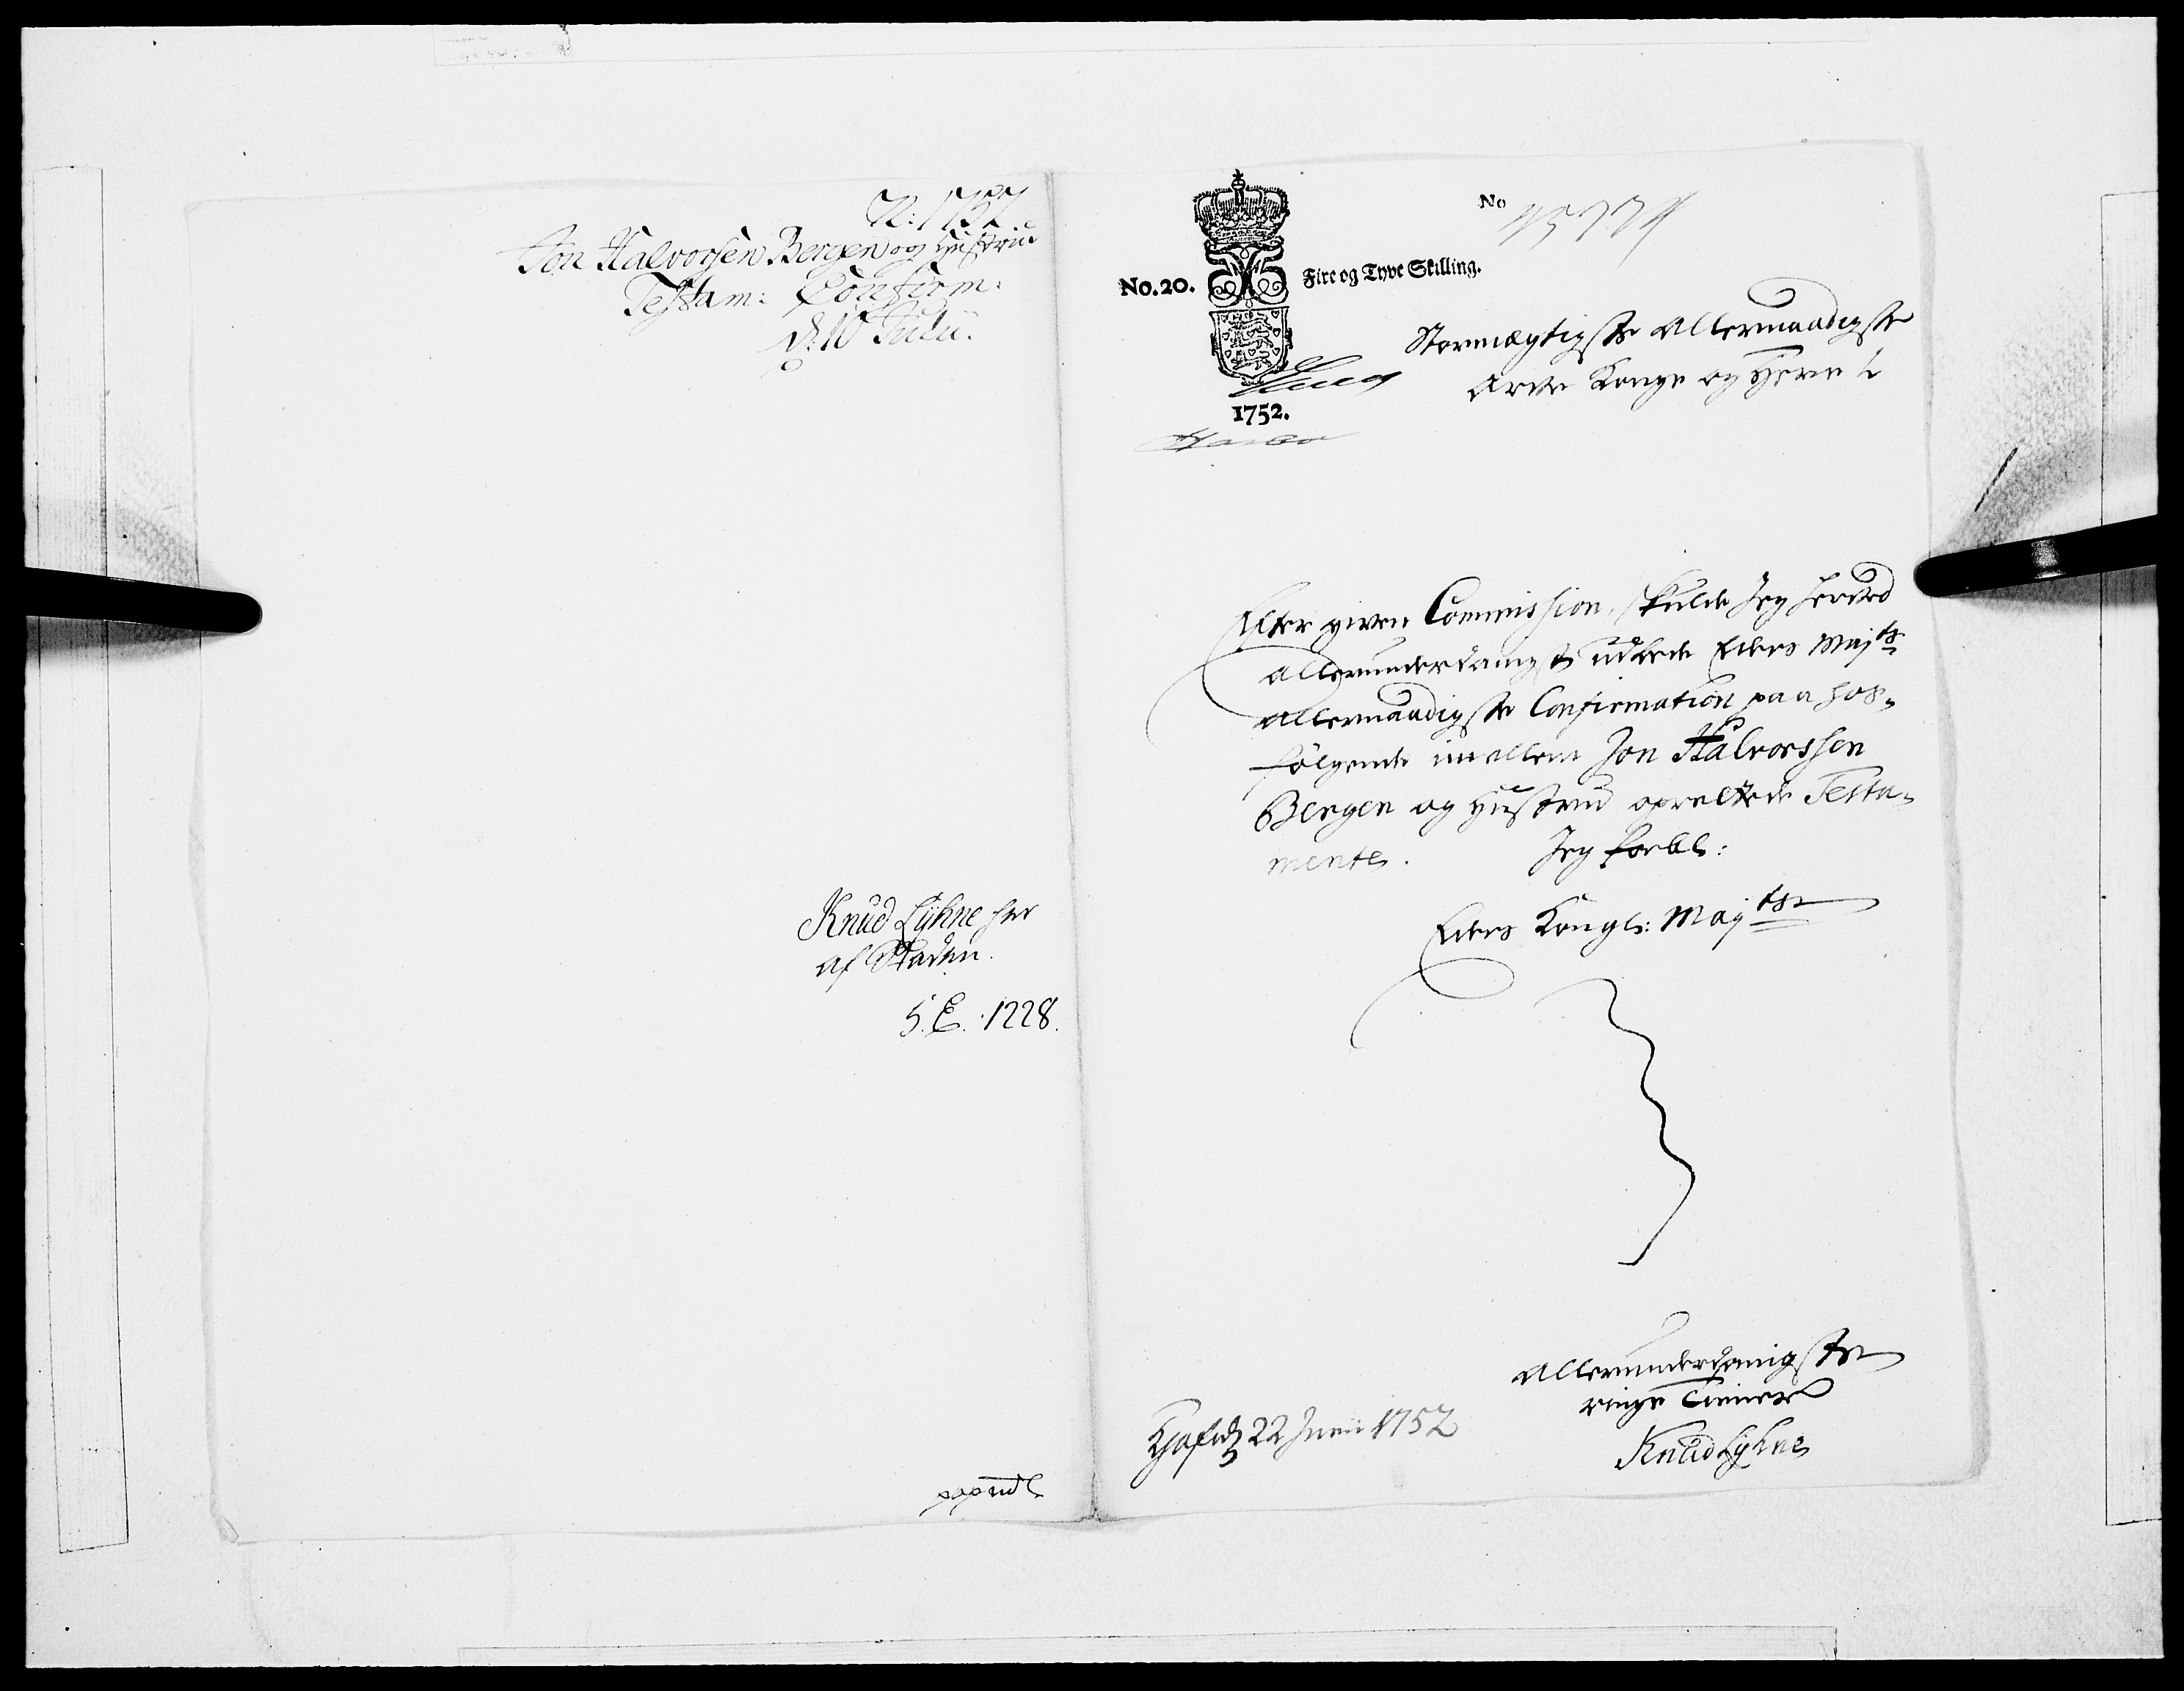 N: 1737
Jon Halvorsen Bergen og Hustrüe
Testam: Confirm:
d: 10 Julii.
Knud Lÿhne her
af Staden.
5. E. 1228.
No. 20.
Fire og Tyve Skilling.
No
1752.
Stormægtigste Allernaadigste
Arve Konge og Herre
Efter given Commission, skulde Jeg herved
allerunderdanigst udbede Eders Maj.ts
allernaadigste Confirmation paa hos-
følgende imellem Jon Halvorssen
Bergen og Hustrue oprettede Testa-
mente. Jeg forbl:
Eders Kongl: Maj.ts
Allerunderdanigste
ringe Tiener
Knud Lyhne
Hafn d 22 Junii 1752